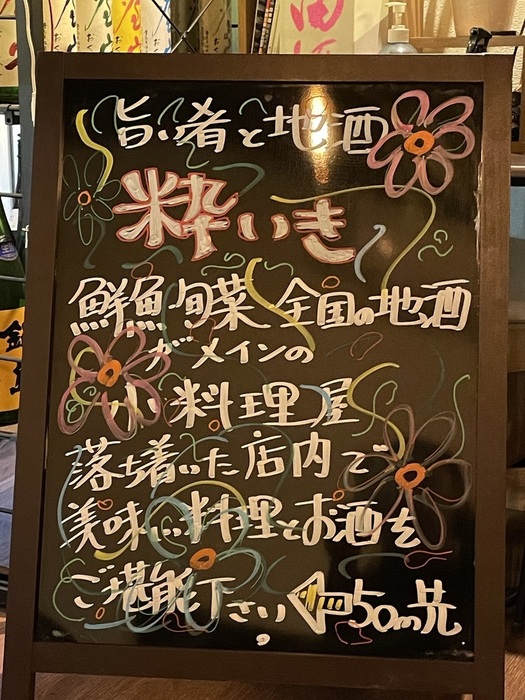 旨い肴と地酒
粋いき
鮮魚旬菜 全国の地酒
がメインの
小料理屋
落ち着いた店内で
美味しい料理とお酒を
ご堪能下さい ⇦50m先